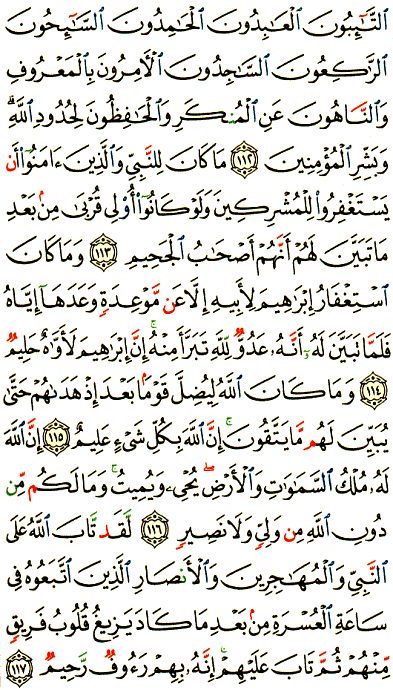 ٱلتَّٰٓئِبُونَ ٱلْعَٰبِدُونَ ٱلْحَٰمِدُونَ ٱلسَّٰٓئِحُونَ
ٱلرَّٰكِعُونَ ٱلسَّٰجِدُونَ ٱلْءَامِرُونَ بِٱلْمَعْرُوفِ
وَٱلنَّاهُونَ عَنِ ٱلْمُنكَرِ وَٱلْحَٰفِظُونَ لِحُدُودِ ٱللَّهِۗ
وَبَشِّرِ ٱلْمُؤْمِنِينَ ١١٢ مَا كَانَ لِلنَّبِىِّ وَٱلَّذِينَ ءَامَنُوٓا۟ أَن
يَسْتَغْفِرُوا۟ لِلْمُشْرِكِينَ وَلَوْ كَانُوٓا۟ أُو۟لِى قُرْبَىٰ مِنۢ بَعْدِ
مَا تَبَيَّنَ لَهُمْ أَنَّهُمْ أَصْحَٰبُ ٱلْجَحِيمِ ١١٣ وَمَا كَانَ
ٱسْتِغْفَارُ إِبْرَٰهِيمَ لِأَبِيهِ إِلَّا عَن مَّوْعِدَةٍ وَعَدَهَآ إِيَّاهُ
فَلَمَّا تَبَيَّنَ لَهُۥٓ أَنَّهُۥ عَدُوٌّ لِّلَّهِ تَبَرَّأَ مِنْهُۚ إِنَّ إِبْرَٰهِيمَ لَأَوَّٰهٌ حَلِيمٌ
١١٤ وَمَا كَانَ ٱللَّهُ لِيُضِلَّ قَوْمًۢا بَعْدَ إِذْ هَدَىٰهُمْ حَتَّىٰ
يُبَيِّنَ لَهُم مَّا يَتَّقُونَۚ إِنَّ ٱللَّهَ بِكُلِّ شَىْءٍ عَلِيمٌ ١١٥ إِنَّ ٱللَّهَ
لَهُۥ مُلْكُ ٱلسَّمَٰوَٰتِ وَٱلْأَرْضِۖ يُحْىِۦ وَيُمِيتُۚ وَمَا لَكُم مِّن
دُونِ ٱللَّهِ مِن وَلِىٍّ وَلَا نَصِيرٍ ١١٦ لَّقَد تَّابَ ٱللَّهُ عَلَى
ٱلنَّبِىِّ وَٱلْمُهَٰجِرِينَ وَٱلْأَنصَارِ ٱلَّذِينَ ٱتَّبَعُوهُ فِى
سَاعَةِ ٱلْعُسْرَةِ مِنۢ بَعْدِ مَا كَادَ يَزِيغُ قُلُوبُ فَرِيقٍ
مِّنْهُمْ ثُمَّ تَابَ عَلَيْهِمْۚ إِنَّهُۥ بِهِمْ رَءُوفٌ رَّحِيمٌ ١١٧